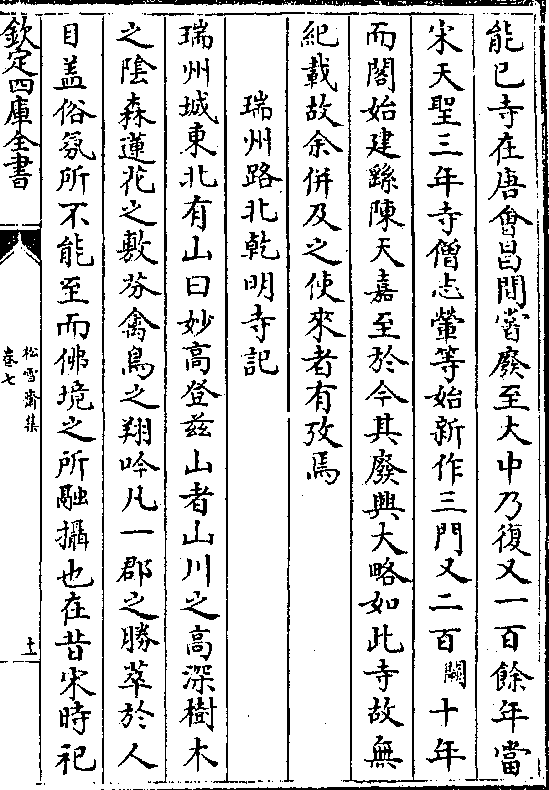 能已寺在唐㑹昌間嘗廢至大中乃復又一百餘年當
宋天聖三年寺僧志蠻等始新作三門又二百闕十年
而閣始建繇陳天嘉至於今其廢興大略如此寺故無
紀載故余併及之使來者有攷焉
瑞州路北乾明寺記
瑞州城東北有山曰妙高登兹山者山川之高深樹木
之陰森蓮花之敷芬禽鳥之翔吟凡一郡之勝萃於人
目盖俗氛所不能至而佛境之所融攝也在昔宋時祀
欽定四庫全書
松雪齋集
卷七
十一